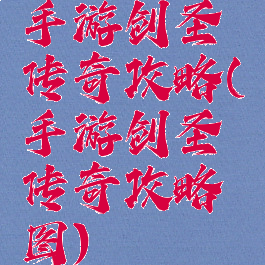 手游创圣
传奇攻略(
手游创圣
传奇攻略
图)